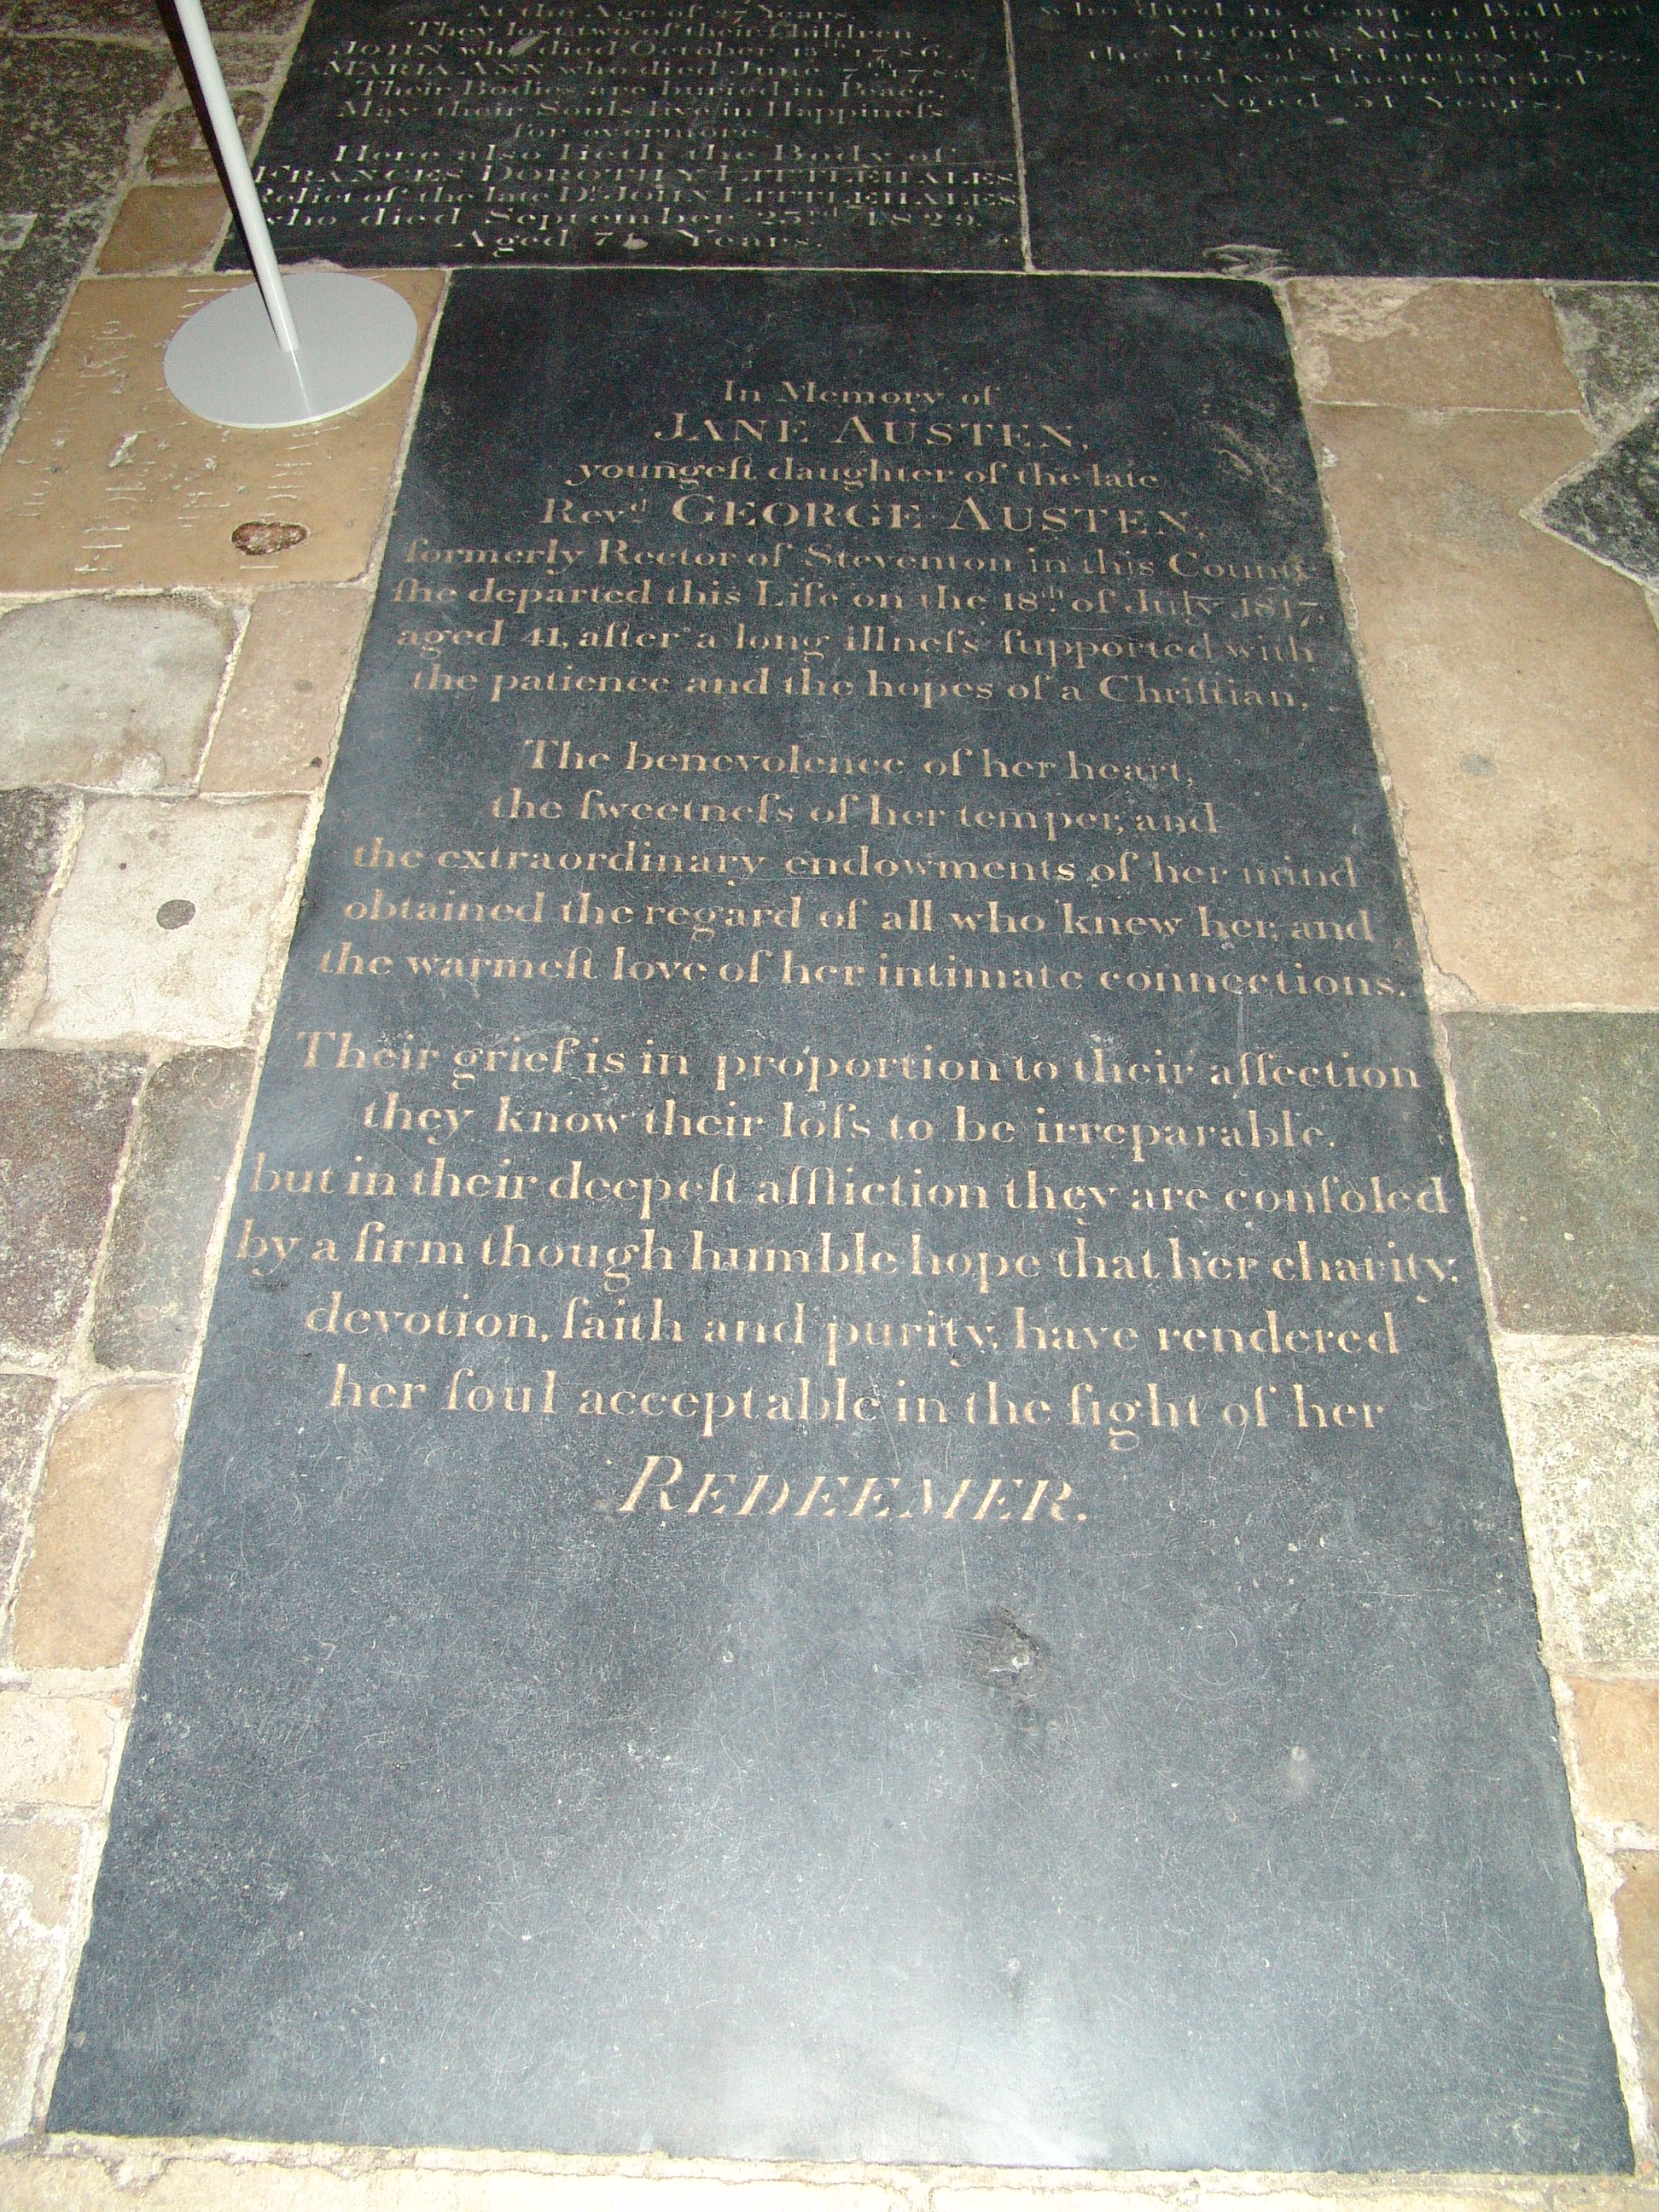 At the Age of 37 Years.
They lost two of their Children
JOHN who died October 13th 1786.
MARIA ANN who died June 7th 1785.
Their Bodies are buried in Peace,
May their Souls live in Happineſs
for evermore.
Here also lieth the Body of
FRANCES DOROTHY LITTLEHALES
Relict of the late Dr. JOHN LITTLEHALES
who died September 23rd 1829.
Aged 74 Years.
who died in Camp at Ballarat
Victoria Australia.
the 12th of February 1855.
and was there buried
Aged 51 Years.
In Memory of
JANE AUSTEN,
youngeſt daughter of the late
Revd. GEORGE AUSTEN,
formerly Rector of Steventon in this County
ſhe departed this Life on the 18th of July 1817,
aged 41, after a long illneſs ſupported with
the patience and the hopes of a Chriſtian.
The benevolence of her heart,
the ſweetneſs of her temper, and
the extraordinary endowments of her mind
obtained the regard of all who knew her, and
the warmeſt love of her intimate connections.
Their grief is in proportion to their affection
they know their loſs to be irreparable,
but in their deepeſt affliction they are conſoled
by a firm though humble hope that her charity,
devotion, faith and purity, have rendered
her ſoul acceptable in the ſight of her
REDEEMER.